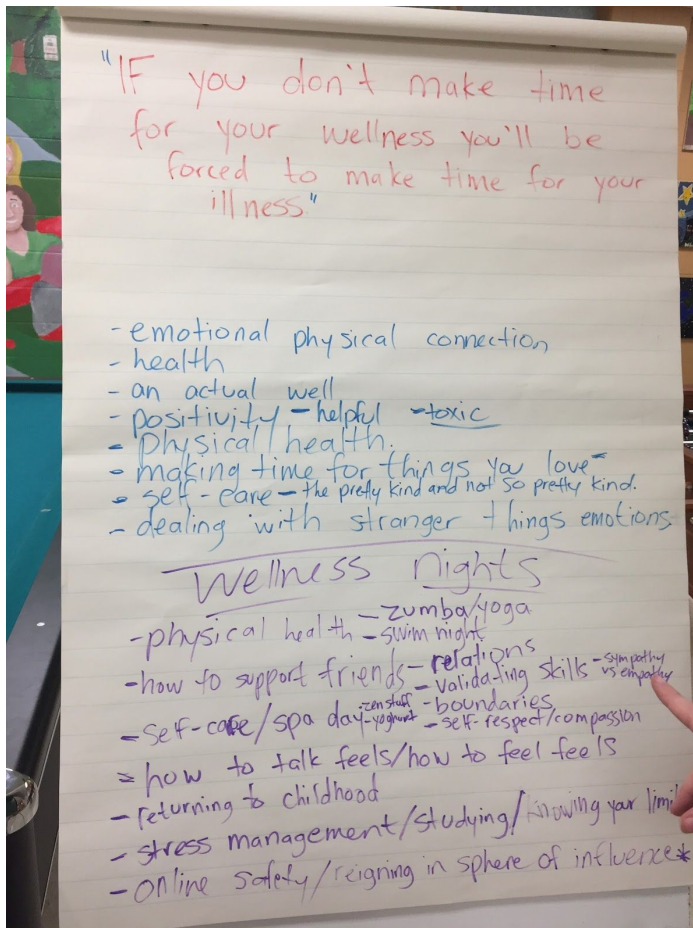 "IF you don't make time
for your wellness you'll be
forced to make time for your
illness"
- emotional physical connection
- health
- an actual well
- positivity - helpful - toxic
- Physical health.
- making time for things you love
- self-care - the pretty kind and not so pretty kind.
- dealing with stranger things emotions
Wellness nights
- physical health - zumba/yoga
- swim night
- how to support friends - relations
- validating skills - sympathy
vs empathy
- boundaries
- self-respect/compassion
- self-care/spa day - zen stuff
- yoghurt
- how to talk feels/how to feel feels
- returning to childhood
- stress management/studying/knowing your limi
- online safety/reigning in sphere of influence*